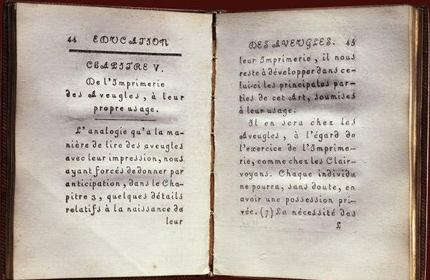 44 EDUCATION
CHAPITRE V.
De l'Imprimerie
des Aveugles, à leur
propre usage.
L'analogie qu'a la ma-
nière de lire des aveugles
avec leur impression, nous
ayant forcés de donner par
anticipation, dans le Cha-
pitre 3, quelques détails
relatifs à la naissance de
leur
DES AVEUGLES. 45
leur Imprimerie, il nous
reste à développer dans ce-
lui-ci les principales par-
ties de cet Art, soumises
à leur usage.
Il en sera chez les
Aveugles, à l'égard de
l'exercice de l'Imprime-
rie, comme chez les Clair-
voyans. Chaque individu
ne pourra, sans doute, en
avoir une possession pri-
vée. (7) La nécessité des